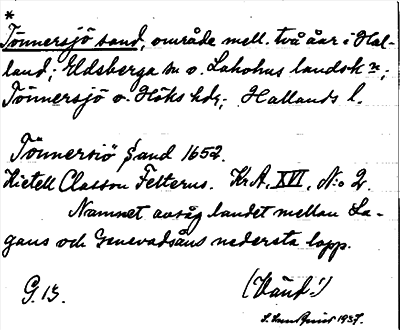 *
Tönnersjö sand, område mell. två åar i Hal-
land; Eldsberga sn o. Laholms landsk n;
Tönnersjö o. Höks hdr; Hallands l.
Tönnersiö Sand 1652.
Kietell Classon Felterus. KrA, XVI, No 2.
Namnet avsåg landet mellan La-
gans och Genevadsåns nedersta lopp.
G. 13.
(Vänd!)
1937.